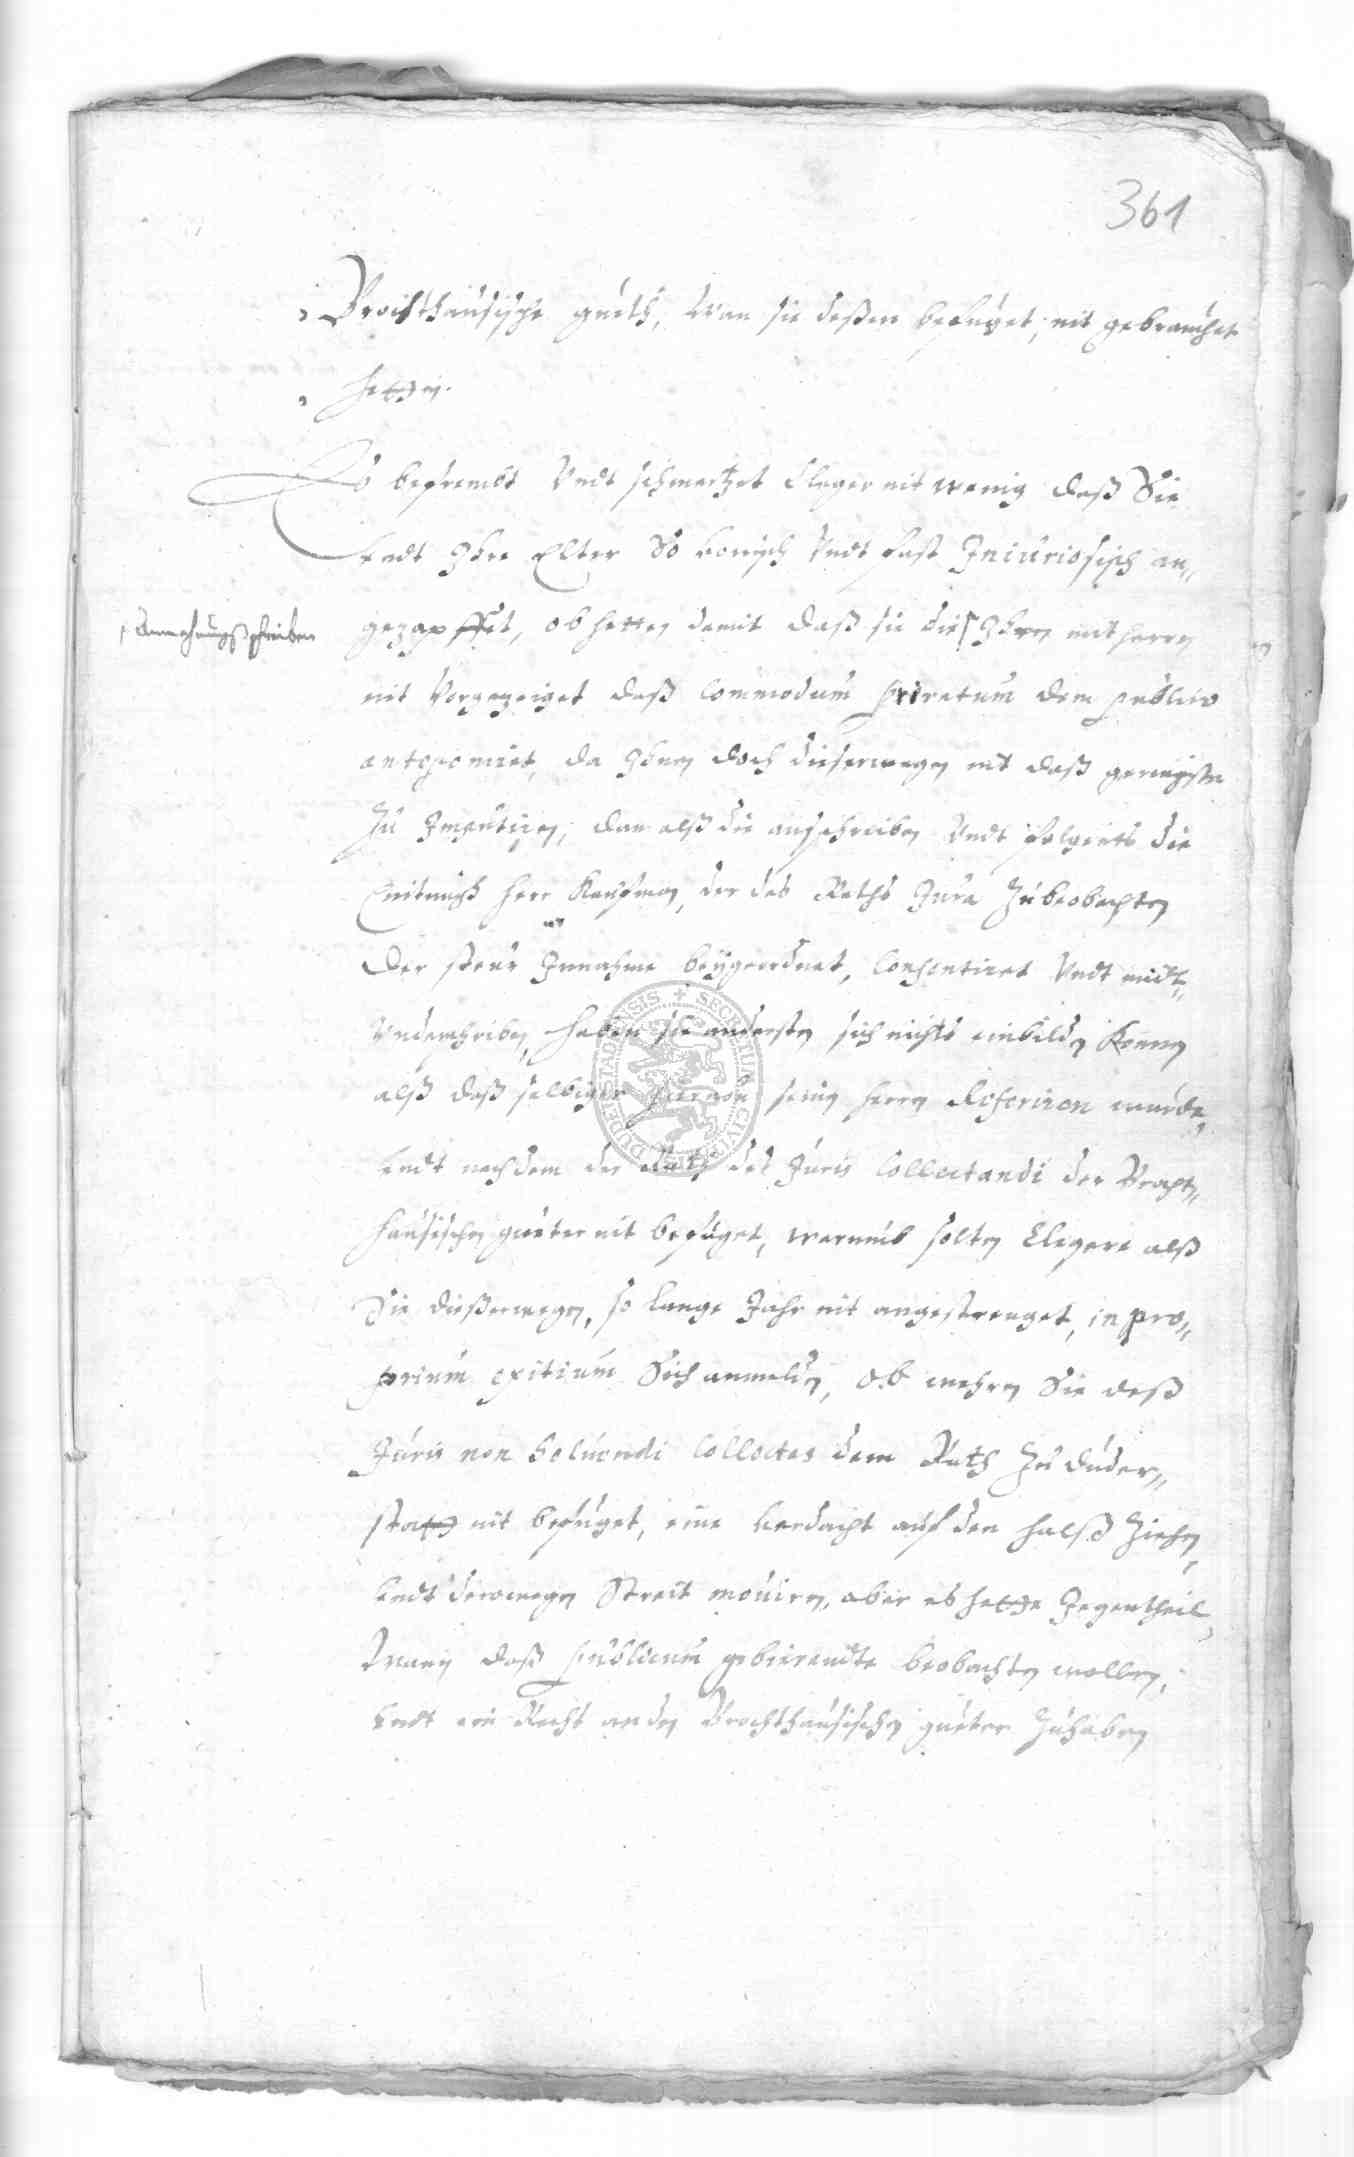 361
Brochthausische gueth, wan sie deßen befuget, nit gebrauchet
hetten.
Es befrembt Undt schmertzet Cleger nit wenig daß Sie
Undt Ihre Elter so honisch Undt fast Iniuriosisch an„
gezapffet, ob hetten damit daß sie die Ihren mit herren
Anmahnungsschreiben
nit Vorgezeiget daß Commodum privatum dem publico
anteponiret, da Ihnen doch dieserwegen nit daß geringste
Zu Imputiren, dan alß die außschreiben Undt folgents die
herr Kaufman, der des Raths Jura Zu beobachten
der steur Innahme beÿgeordnet, Consentiret Undt midt„
Underschriben, haben sie andersten sich nichts einbilden Konnen
alß daß selbiger hiervon seinen herren Referiren wurde,
Undt nachdem der Rath des Juris Collectandi der Brocht„
hausischen gueter nit befuget, warumb solten Clegere alß
Sie dießerwegen, so lange Jahr nit angestrenget, in pro„
prium exitium Sich anmelden, ob wehren Sie deß
Juris non Soluendi Collectas dem Rath Zu Duder„
statt nit befuget, eine Verdacht auf den halß Ziehen,
Undt derowegen Streit mouiren, aber es hette Gegentheil,
Wan daß publicum gebierendte beobachten wollen,
Undt ein Recht an den Brochthausischen gueter Zuhaben
SECRETUM CIVITATIS DUDERSTADENSIS